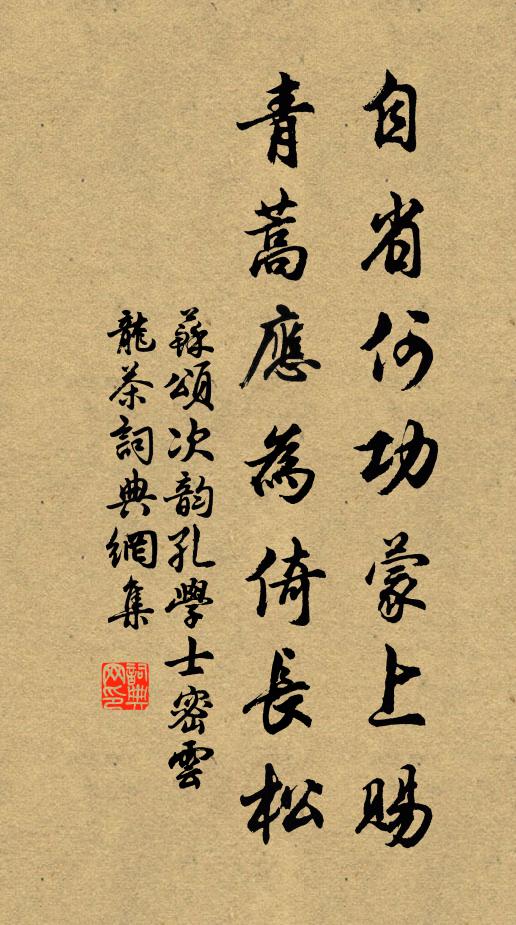 自省何功蒙上賜
青蒿應為倚長松
蘇頌次韵孔學士密雲
龍茶詞典網集
詞典網印